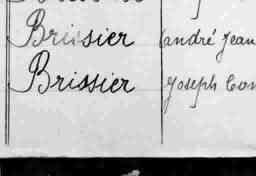 Brissier André Jean
Brissier Joseph